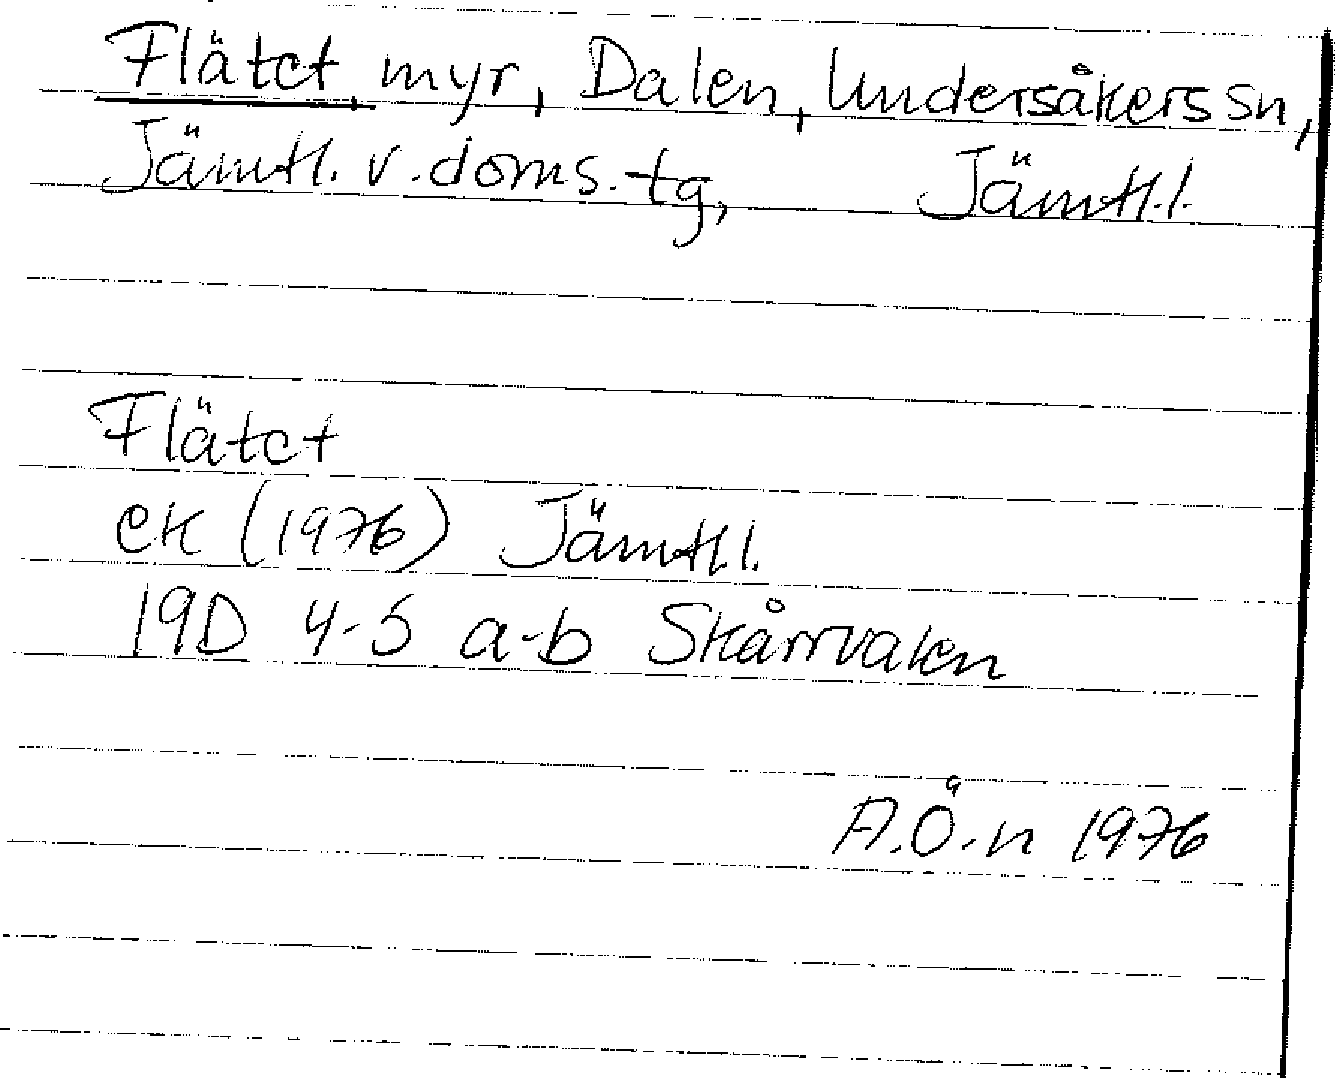 Flätet, myr, Dalen, Undersåkers sn,
Jämtl. v. doms. tg, Jämtl.l.
Flätet
ek (1976) Jämtl.l.
19D 4-5 a-b Skårrvalen
A.Ö-n 1976